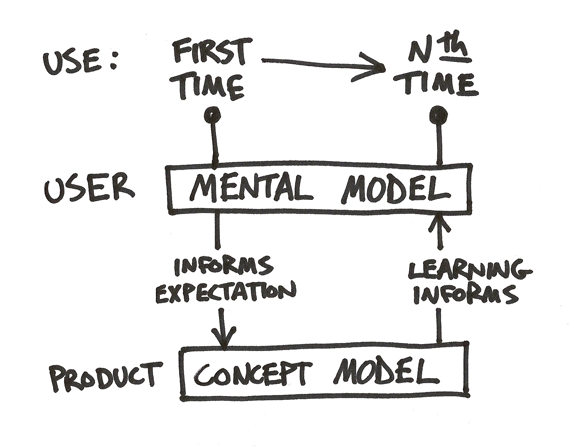 USE: FIRST TIME → Nth TIME
USER MENTAL MODEL
INFORMS EXPECTATION
LEARNING INFORMS
PRODUCT CONCEPT MODEL